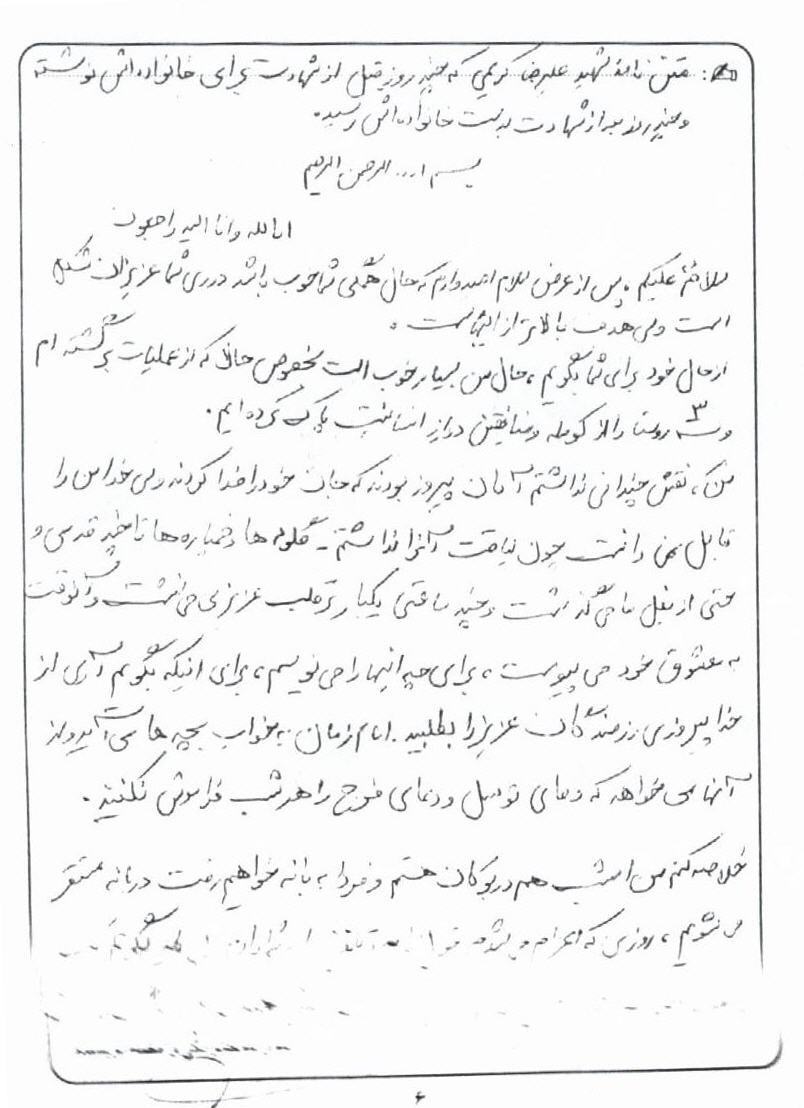 متن نامهٔ شهید علیرضا کریمی که چند روز قبل از شهادت برای خانواده‌اش نوشته
و چند روز بعد از شهادت بدست خانواده‌اش رسید.
بسم ا... الرحمن الرحیم
انا لله وانا الیه راجعون
سلام علیکم، پس از عرض سلام امیدوارم که حال همگی شما خوب باشد دوری شما عزیزان مشکل
است ولی هدف بالاتر از اینهاست.
از حال خود برای شما بگویم، حال من بسیار خوب است بخصوص حالا که از عملیات برگشته ام
و ۳ روستا را از کومله و منافقین دور از انسانیت پاک کرده ایم.
من که نقش چندانی نداشتم آنان پیروز بودند که جان خود را فدا کردند ولی خدا من را
قابل نمی دانست چون لیاقت آنرا نداشتم. گلوله ها و خمپاره ها تا چند قدمی و
حتی از بغل ما می گذشت و چند ساعتی یکبار بر قلب عزیزی می نشست و آنوقت
به معشوق خود می پیوست، برای چه اینها را می نویسم، برای اینکه بگویم آری از
خدا پیروزی رزمندگان عزیز را بطلبید. امام زمان به خواب بچه ها می آید و از
آنها می خواهد که دعای توسل و دعای فرج را هر شب فراموش نکنید.
خلاصه کنم من امشب هم در بوکان هستم و فردا به بانه خواهم رفت در بانه مستقر
می شویم، روزی که اعزام می شدم
۶